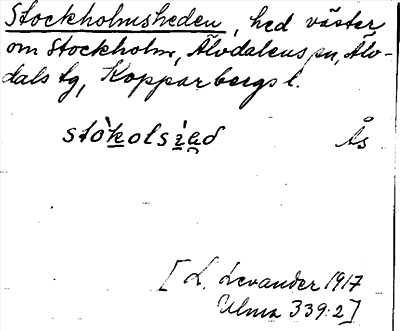 Stockholmsheden, hed väster
om Stockholm, Älvdalens sn, Älv-
dals tg, Kopparbergs l.
Ås
[L. Levander 1917
Ulma 339:2]